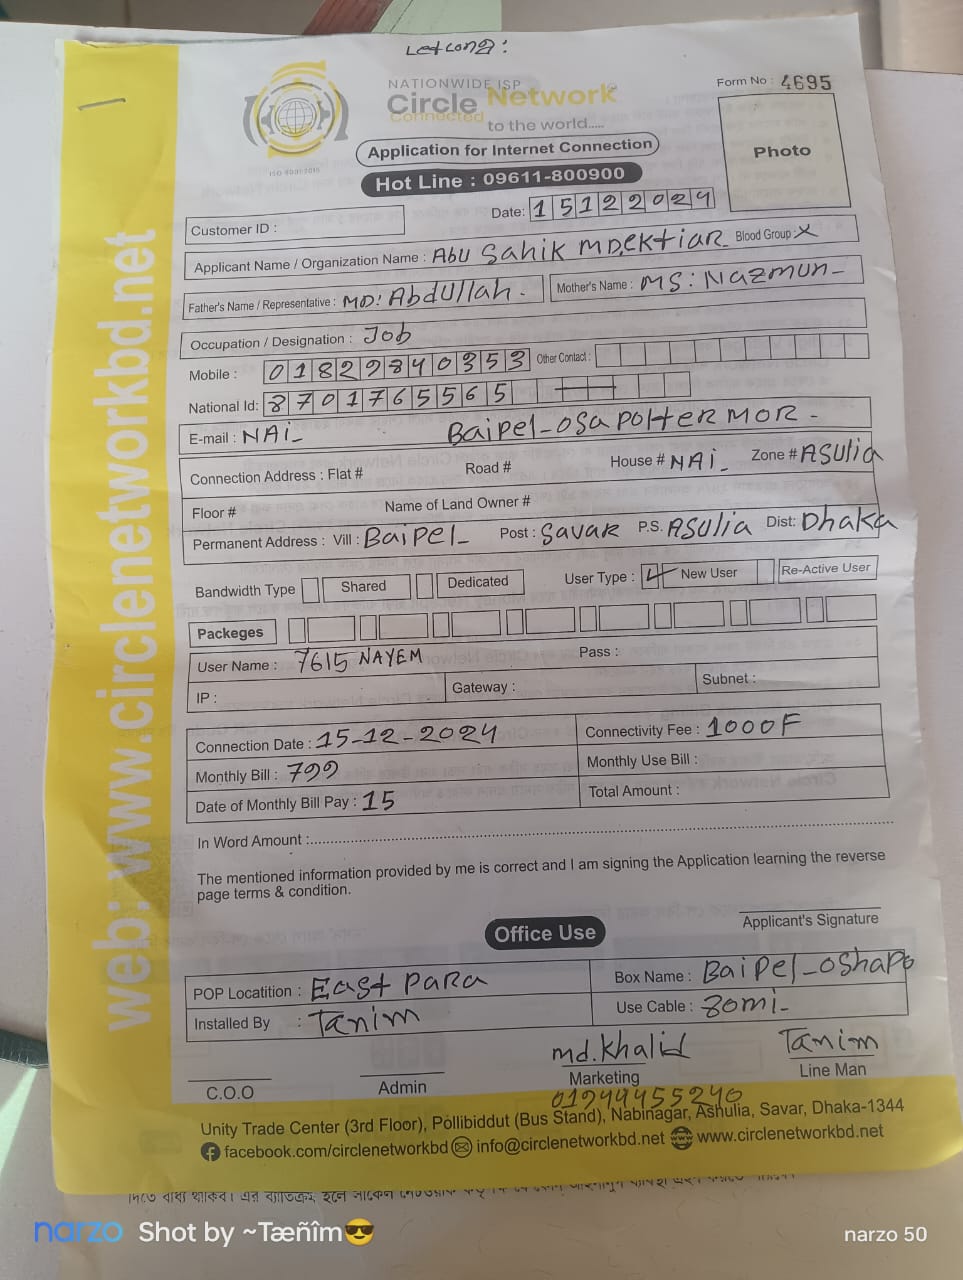 NATIONWIDE ISP
Circle Network
Connected to the world.....
Form No : 4695
Photo
Application for Internet Connection
Hot Line : 09611-800900
Date: 15122024
Customer ID :
Applicant Name / Organization Name : Abu Sahik MD.EKtiar Blood Group: X
Father's Name / Representative : MD: Abdullah - Mother's Name : MS: Nazmun -
Occupation / Designation : Job
Mobile : 01829840353 Other Contact :
National Id: 8701765565
E-mail : NAi_ Baipel_osa polter mor -
Connection Address : Flat # Road # House # NAi_ Zone # Asulia
Floor # Name of Land Owner #
Permanent Address : Vill : Baipel_ Post : Savar P.S. Asulia Dist: Dhaka
Bandwidth Type Shared Dedicated User Type : New User Re-Active User
Packeges
User Name : 7615 NAYEM Pass :
IP : Gateway : Subnet :
Connection Date : 15-12-2024 Connectivity Fee : 1000F
Monthly Bill : 799 Monthly Use Bill :
Date of Monthly Bill Pay : 15 Total Amount :
In Word Amount :
The mentioned information provided by me is correct and I am signing the Application learning the reverse
page terms & condition.
Applicant's Signature
Office Use
POP Locatition : East para Box Name : Baipel_oshapo
Installed By : Tanim Use Cable : 80mi_
md.Khalid Tanim
C.O.O Admin Marketing Line Man
01944455240
Unity Trade Center (3rd Floor), Pollibiddut (Bus Stand), Nabinagar, Ashulia, Savar, Dhaka-1344
facebook.com/circlenetworkbd info@circlenetworkbd.net www.circlenetworkbd.net
web: www.circlenetworkbd.net
narzo Shot by ~Tæñîm😎 narzo 50